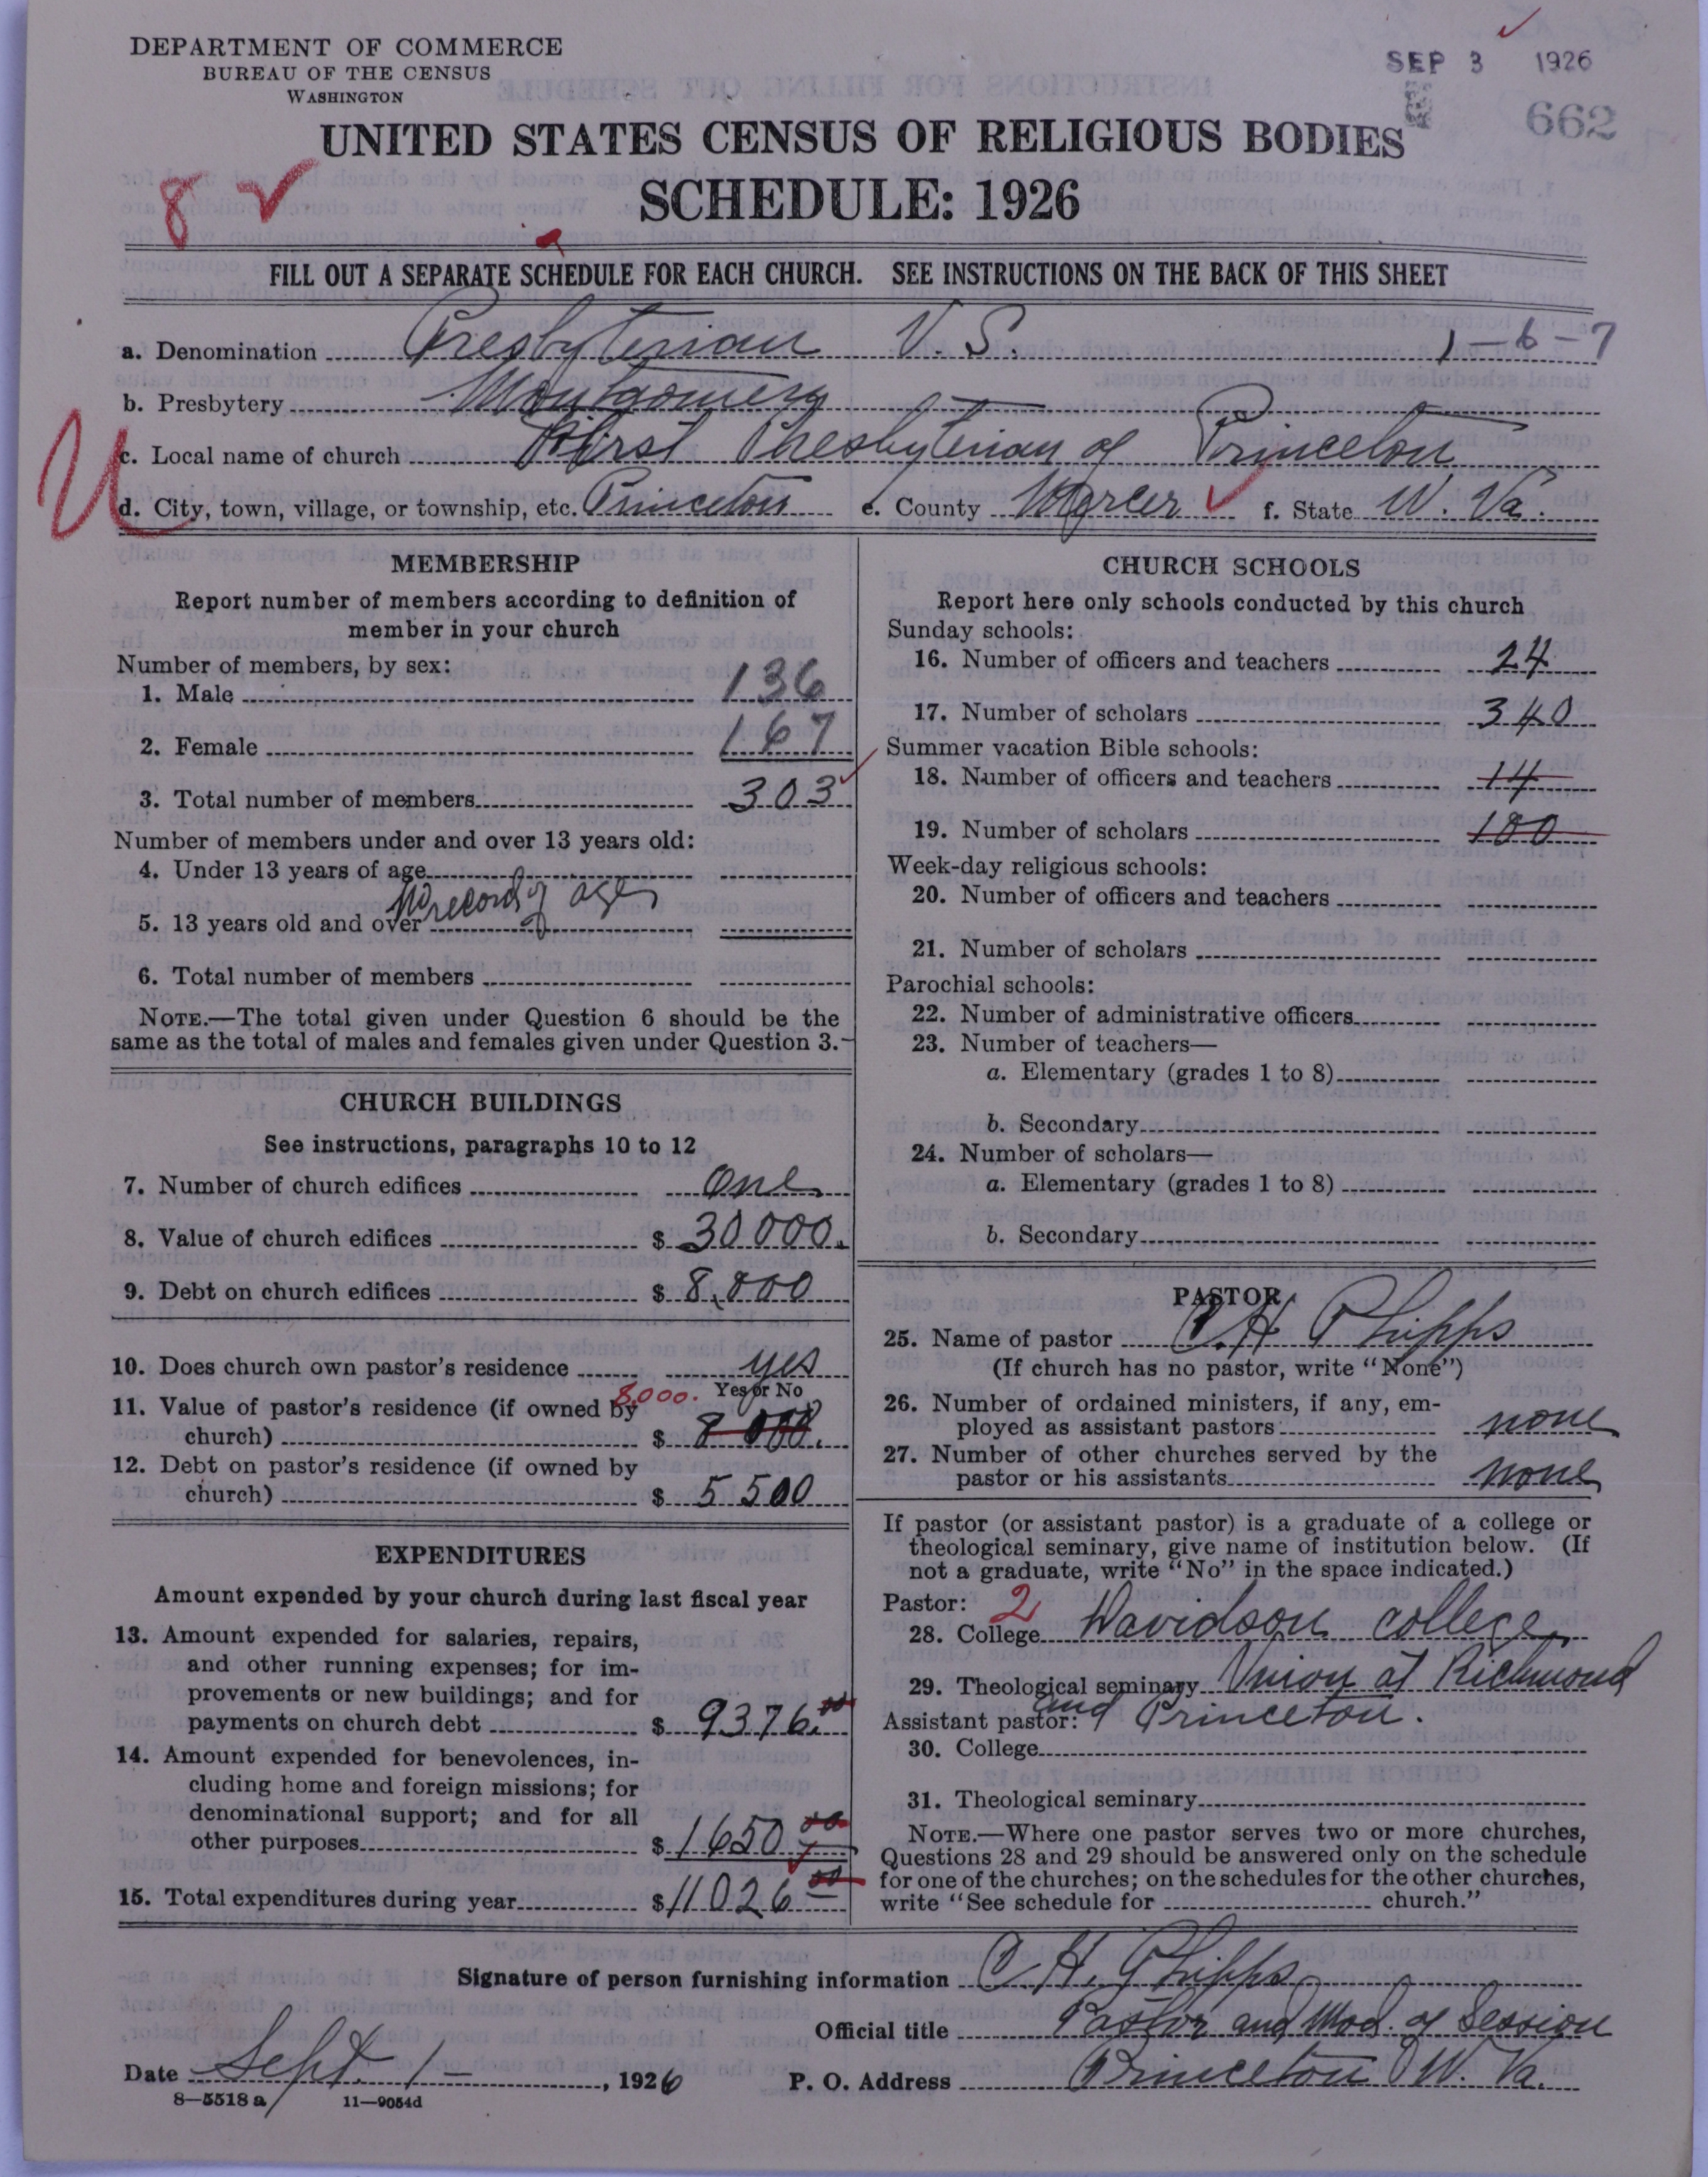 DEPARTMENT OF COMMERCE
BUREAU OF THE CENSUS
WASHINGTON
SEP 3 1926
662
UNITED STATES CENSUS OF RELIGIOUS BODIES
SCHEDULE: 1926
8
FILL OUT A SEPARATE SCHEDULE FOR EACH CHURCH. SEE INSTRUCTIONS ON THE BACK OF THIS SHEET
a. Denomination Presbyterian U. S. 1-6-7
b. Presbytery Montgomery
U
c. Local name of church First Presbyterian of Princeton
d. City, town, village, or township, etc. Princeton e. County Mercer f. State W. Va.
MEMBERSHIP
Report number of members according to definition of
member in your church
Number of members, by sex:
1. Male 136
2. Female 167
3. Total number of members 303
Number of members under and over 13 years old:
4. Under 13 years of age
No record of ages
5. 13 years old and over
6. Total number of members
NOTE.—The total given under Question 6 should be the
same as the total of males and females given under Question 3.
CHURCH BUILDINGS
See instructions, paragraphs 10 to 12
7. Number of church edifices one
8. Value of church edifices $ 30 000.
9. Debt on church edifices $ 8,000
10. Does church own pastor's residence yes
Yes or No
8,000.
11. Value of pastor's residence (if owned by
church) $ 8 000.
12. Debt on pastor's residence (if owned by
church) $ 5 500
EXPENDITURES
Amount expended by your church during last fiscal year
13. Amount expended for salaries, repairs,
and other running expenses; for im-
provements or new buildings; and for
payments on church debt $ 9376.00
14. Amount expended for benevolences, in-
cluding home and foreign missions; for
denominational support; and for all
other purposes $ 1650 00
15. Total expenditures during year $ 11026 00
CHURCH SCHOOLS
Report here only schools conducted by this church
Sunday schools:
16. Number of officers and teachers 24
17. Number of scholars 340
Summer vacation Bible schools:
18. Number of officers and teachers 14
19. Number of scholars 100
Week-day religious schools:
20. Number of officers and teachers
21. Number of scholars
Parochial schools:
22. Number of administrative officers
23. Number of teachers—
a. Elementary (grades 1 to 8)
b. Secondary
24. Number of scholars—
a. Elementary (grades 1 to 8)
b. Secondary
PASTOR
25. Name of pastor C. H. Phipps
(If church has no pastor, write "None")
26. Number of ordained ministers, if any, em-
ployed as assistant pastors none
27. Number of other churches served by the
pastor or his assistants none
If pastor (or assistant pastor) is a graduate of a college or
theological seminary, give name of institution below. (If
not a graduate, write "No" in the space indicated.)
Pastor: 2
28. College Davidson college
29. Theological seminary Union at Richmond
Assistant pastor: and Princeton.
30. College
31. Theological seminary
NOTE.—Where one pastor serves two or more churches,
Questions 28 and 29 should be answered only on the schedule
for one of the churches; on the schedules for the other churches,
write "See schedule for church."
Signature of person furnishing information C H. Phipps
Official title Pastor and Mod. of Session
Date Sept. 1 - , 1926 P. O. Address Princeton W. Va.
8—5518 a 11—9054d